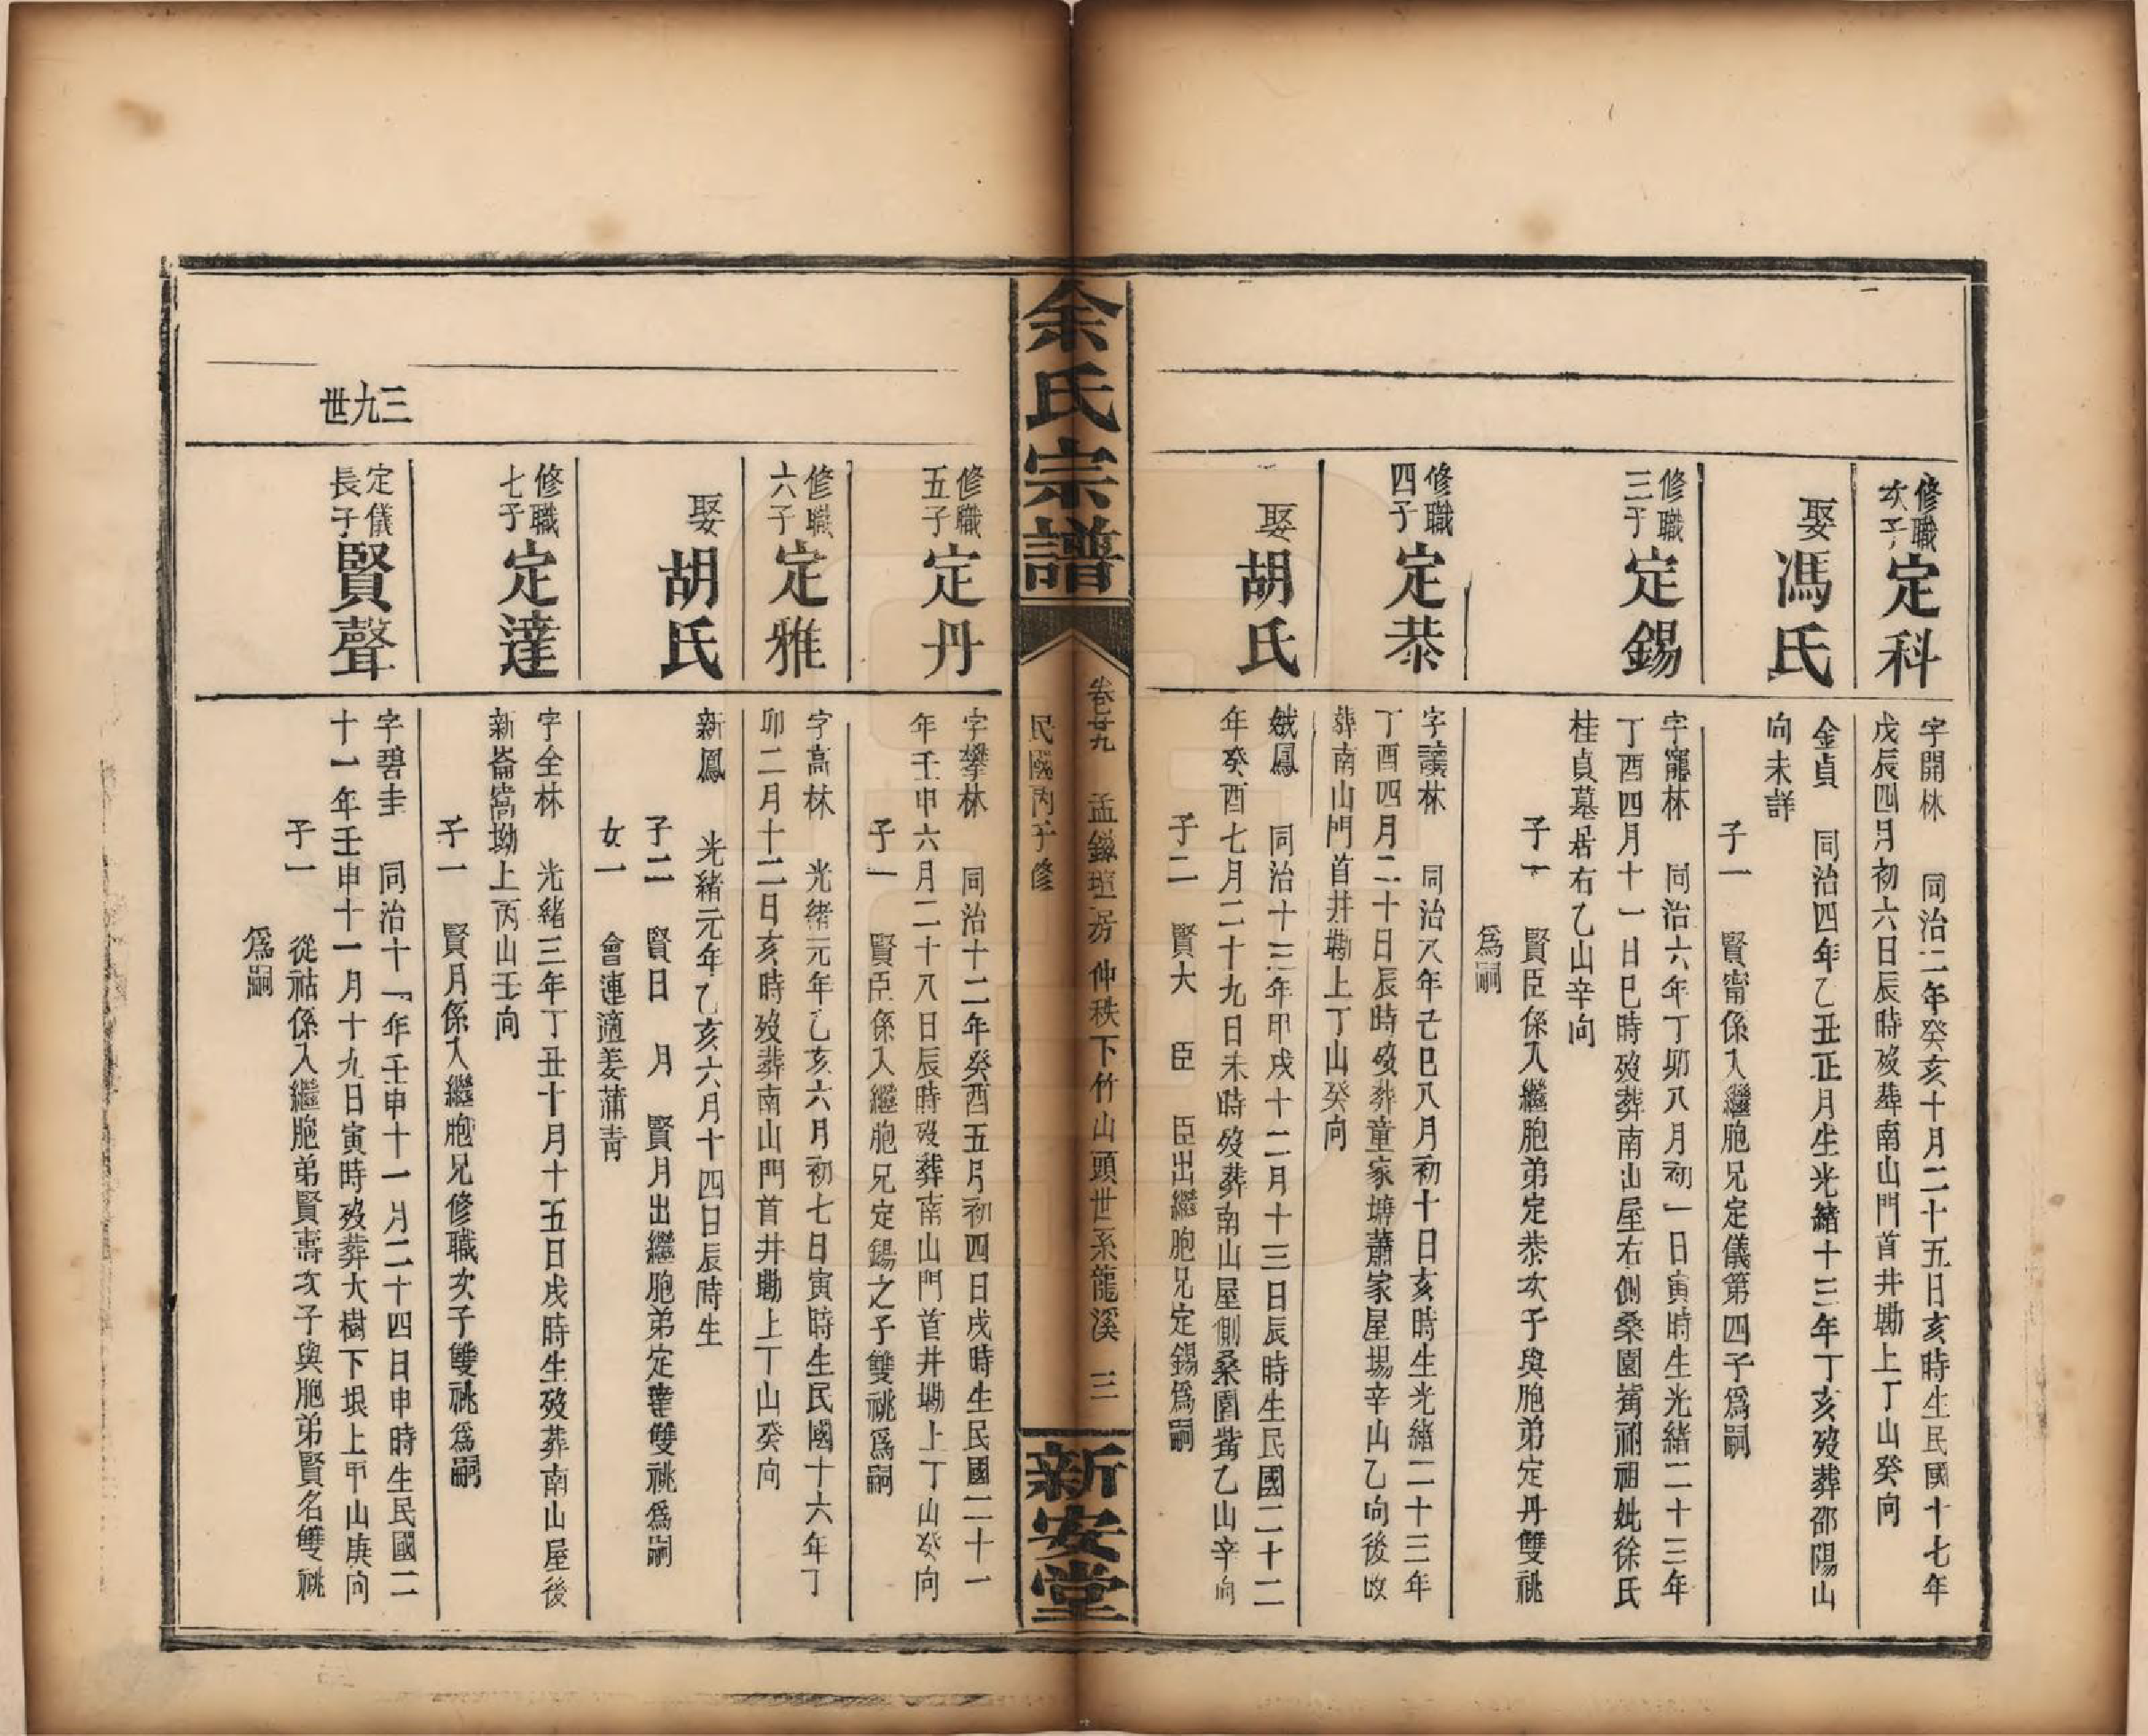 修職
次子
定科
字開林 同治二年癸亥十月二十五日亥時生民國十七年
戊辰四月初六日辰時歿葬南山門首井墈上丁山癸向
娶
馮氏
金貞 同治四年乙丑正月生光緒十三年丁亥歿葬邵陽山
向未詳
子一 賢甯係入繼胞兄定儀第四子爲嗣
修職
三子
定錫
字寵林 同治六年丁卯八月初一日寅時生光緒二十三年
丁酉四月十一日巳時歿葬南山屋右側桑園嘴祔祖妣徐氏
桂貞墓居右乙山辛向
子一 賢臣係入繼胞弟定恭次子與胞弟定丹雙祧
爲嗣
修職
四子
定恭
字讓林 同治八年己巳八月初十日亥時生光緒二十三年
丁酉四月二十日辰時歿葬童家塘蕭家屋場辛山乙向後改
葬南山門首井墈上丁山癸向
娶
胡氏
娥鳳 同治十三年甲戌十二月十三日辰時生民國二十二
年癸酉七月二十九日未時歿葬南山屋側桑園嘴乙山辛向
子二 賢大 臣 臣出繼胞兄定錫爲嗣
余氏宗譜
卷廿九 孟鎰瑄房仲秩下竹山頭世系龍溪 三
民國丙子修
新安堂
修職
五子
定丹
字攀林 同治十二年癸酉五月初四日戌時生民國二十一
年壬申六月二十八日辰時歿葬南山門首井墈上丁山癸向
子一 賢臣係入繼胞兄定錫之子雙祧爲嗣
修職
六子
定雅
字高林 光緒元年乙亥六月初七日寅時生民國十六年丁
卯二月十二日亥時歿葬南山門首井墈上丁山癸向
娶
胡氏
新鳳 光緒元年乙亥六月十四日辰時生
子二 賢日 月 賢月出繼胞弟定達雙祧爲嗣
女一 會連適姜蒲青
修職
七子
定達
字全林 光緒三年丁丑十月十五日戌時生歿葬南山屋後
新崙窩坳上丙山壬向
子一 賢月係入繼胞兄修職次子雙祧爲嗣
三九世
定儀
長子
賢聲
字碧圭 同治十一年壬申十一月二十四日申時生民國二
十一年壬申十一月十九日寅時歿葬大樹下垠上甲山庚向
子一 從祜係入繼胞弟賢壽次子與胞弟賢名雙祧
爲嗣